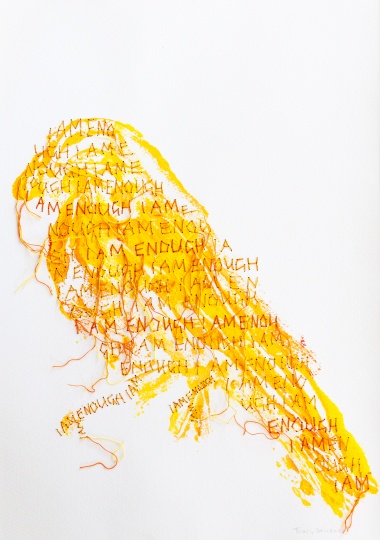 I AM ENO
UGH I AM E
NOUGH I AM E
OUGH I AM ENOUGH
AM ENOUGH I AM E
NOUGH I AM ENOU
I AM ENOUGH I A
ENOUGH I AM ENOUGH
I AM ENOUGH I AM EN
I AM ENOUGH
I AM ENOUGH I AM ENOU
GH I AM ENOUGH I AM
ENOUGH I AM ENOUG
I AM ENOUGH I AM
I AM ENOUGH
I AM ENO
UGH I AM
ENOUGH
I AM EN
OUGH
I AM